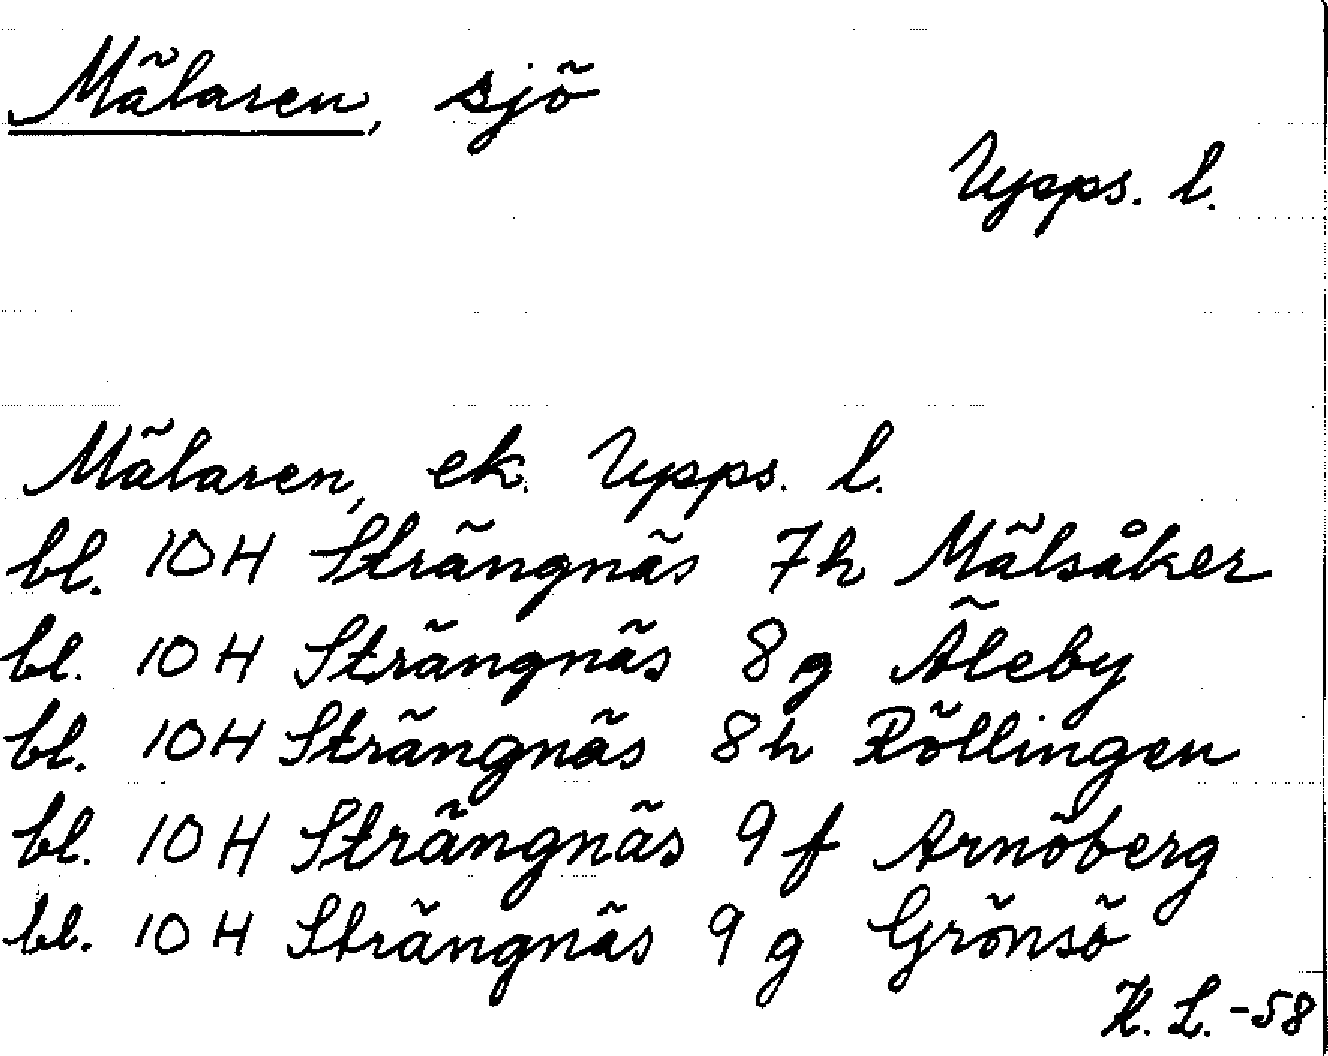 Mälaren, sjö
Upps. l.
Mälaren, ek. Upps. l.
bl. 10H Strängnäs 7h Mälsåker
bl. 10H Strängnäs 8g Äleby
bl. 10H Strängnäs 8h Röllingen
bl. 10H Strängnäs 9f Arnöberg
bl. 10H Strängnäs 9g Grönsö
H. L. -58